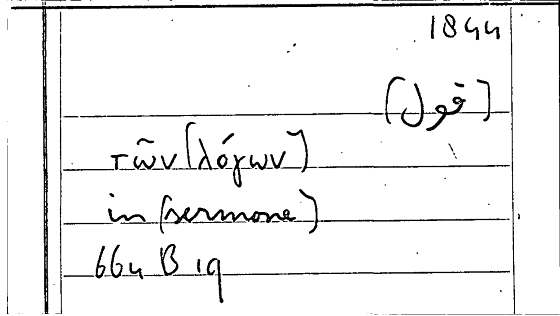 1844
(قول)
τῶν (λόγων)
in (sermone)
664 B 19